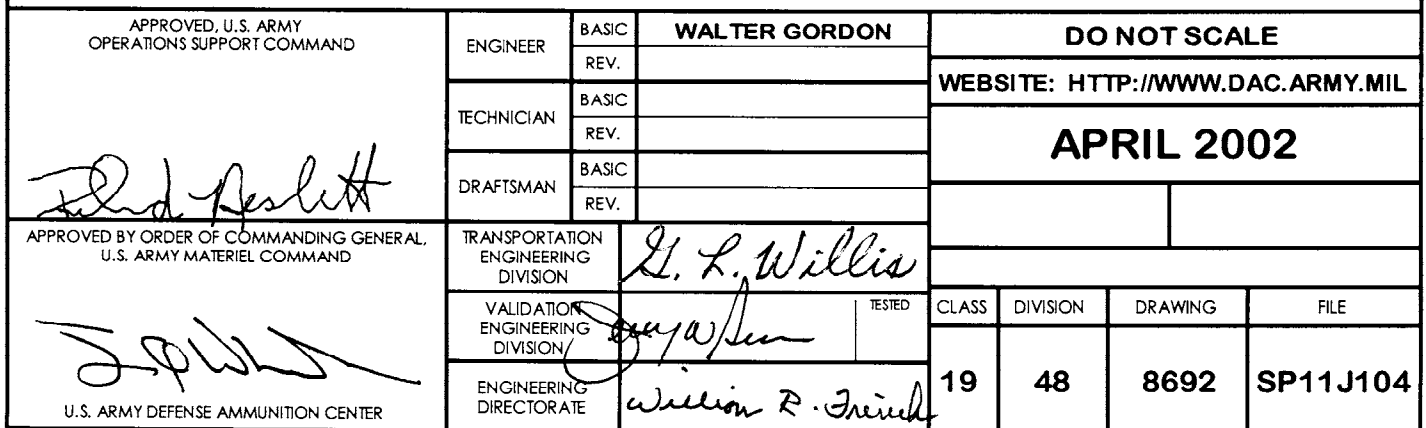 APPROVED, U.S. ARMY
OPERATIONS SUPPORT COMMAND
APPROVED BY ORDER OF COMMANDING GENERAL,
U.S. ARMY MATERIEL COMMAND
U.S. ARMY DEFENSE AMMUNITION CENTER
ENGINEER
BASIC
WALTER GORDON
REV.
TECHNICIAN
BASIC
REV.
DRAFTSMAN
BASIC
REV.
TRANSPORTATION
ENGINEERING
DIVISION
G. L. Willis
VALIDATION
ENGINEERING
DIVISION
TESTED
ENGINEERING
DIRECTORATE
William R. Frerichs
DO NOT SCALE
WEBSITE: HTTP://WWW.DAC.ARMY.MIL
APRIL 2002
CLASS DIVISION DRAWING FILE
19 48 8692 SP11J104